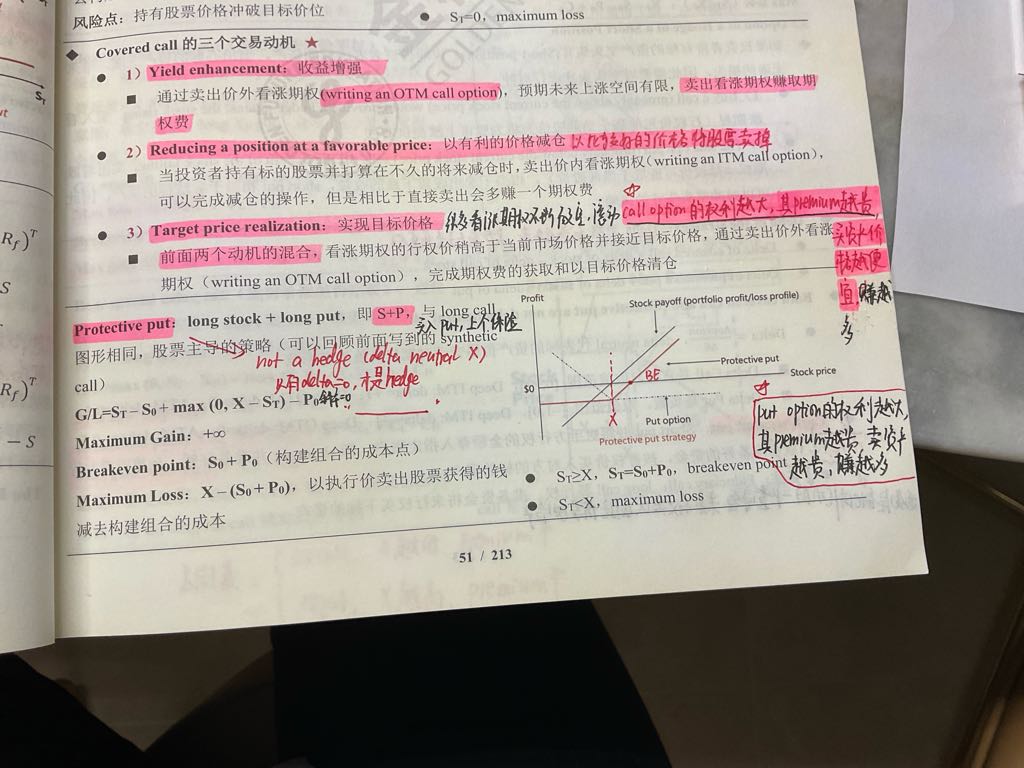 风险点：持有股票价格冲破目标价位
● Sᴛ=0，maximum loss
◆ Covered call 的三个交易动机 ★
● 1）Yield enhancement：收益增强
■ 通过卖出价外看涨期权(writing an OTM call option)，预期未来上涨空间有限，卖出看涨期权赚取期
权费
● 2）Reducing a position at a favorable price：以有利的价格减仓 以比较好的价格将股票卖掉
■ 当投资者持有标的股票并打算在不久的将来减仓时，卖出价内看涨期权（writing an ITM call option），
可以完成减仓的操作，但是相比于直接卖出会多赚一个期权费
☆ call option的权利越大，其premium越贵，
● 3）Target price realization：实现目标价格
■ 前面两个动机的混合，看涨期权的行权价稍高于当前市场价格并接近目标价格，通过卖出价外看涨
期权（writing an OTM call option），完成期权费的获取和以目标价格清仓
宜，赚越
多
Protective put：long stock + long put，即 S+P，与 long call
买入 put，上个保险
图形相同，股票主导的策略（可以回顾前面写到的 synthetic
call）
not a hedge (delta neutral X)
只有delta=0，才是hedge
G/L=Sᴛ－S₀＋max (0, X－Sᴛ)－P₀
Maximum Gain：+∞
Breakeven point：S₀＋P₀（构建组合的成本点）
Maximum Loss：X－(S₀＋P₀)，以执行价卖出股票获得的钱
减去构建组合的成本
Profit
Stock payoff (portfolio profit/loss profile)
Protective put
BE
Stock price
$0
Put option
X
Protective put strategy
☆
put option的权利越大，
其premium越贵，卖资产
越贵，赚越多
● Sᴛ≥X，Sᴛ=S₀+P₀，breakeven point
● Sᴛ<X，maximum loss
51 / 213
R_f)ᵀ
S
R_f)ᵀ
－S
Sᴛ